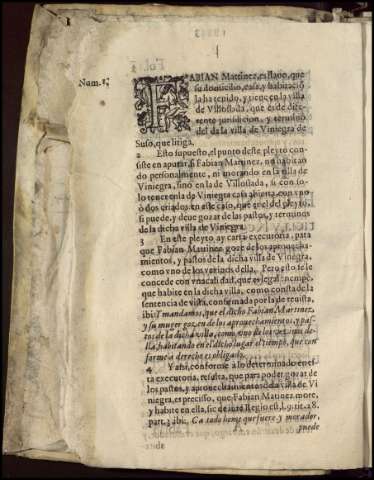 Num. 1.
FABIAN Martinez, es llano, que
su domicilio, casa, y habitació
la ha tenido, y tiene en la villa
de Villoslada, que es de dife-
rente jurisdicion, y termino
del da la villa de Viniegra de
Suso, que litiga.
2 Esto supuesto, el punto deste pleyto con-
siste en apurar, si Fabian Martinez, no habitan
do personalmente, ni morando en la villa de
Viniegra, sino en la de Villoslada, si con so-
lo tener en la de Viniegra casa abierta, con vno
ò dos criados, en este caso, que es el del pleyto,
si puede, y deue gozar de los pastos, y terminos
de la dicha villa de Viniegra.
3 En este pleyto ay carta executoria, para
que Fabian Matinez goze de los aprouecha-
mientos, y pastos de la dicha villa de Viniegra,
como vno de los vezinos della. Pero esto se le
concede con vna calidad, que es
que habite en la dicha villa, como consta de la
sentencia de vista, confirmada por la de reuista,
ibi: Y mandamos, que el dicho Fabian Martinez,
y su muger gozen de los aprouechamientos, y pas-
tos de la dicha villa, como vno de los vezinos de-
lla, habitando en el dicho lugar el tiempo, que con
forme a derecho es obligado.
4 Y assi, conforme a lo determinado en es-
ta executoria, resulta, que para poder gozar de
los pastos, y aprouechamientos de la villa de Vi
niegra, es precisso, que Fabian Matinez more,
y habite en ella, sic de iure Regio est, l. 9. tit. 28.
part. 3. ibi: Ca todo home que fuere y morador,
puede